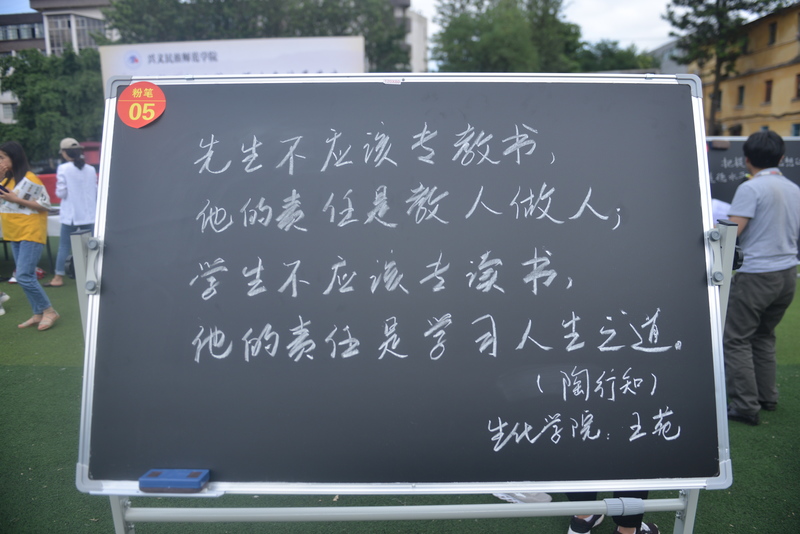 兴义民族师范学院
粉笔
05
先生不应该专教书,
他的责任是教人做人;
学生不应该专读书,
他的责任是学习人生之道。
(陶行知)
生化学院:王苑